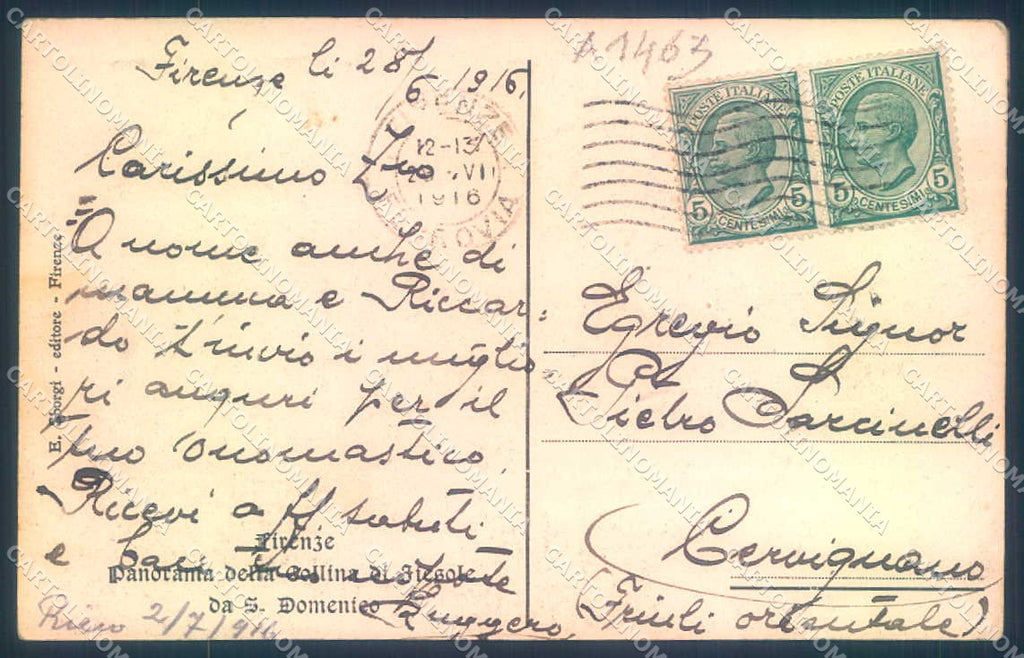 Firenze li 28/6 1916.
Carissimo Zio
A nome anche di
mamma e Riccar=
do t'invio i miglio
ri auguri per il
tuo onomastico.
Ricevi aff. saluti
e baci
nipote
Ruggero,
Firenze
Panorama della Collina di Fiesole
da S. Domenico
2/7/916
E. Sborgi - editore - Firenze
A1463
FIRENZE
FERROVIA
12-13
VI
1916
POSTE ITALIANE
5 CENTESIMI 5
POSTE ITALIANE
5 CENTESIMI 5
Egregio Signor
Pietro Sarcinelli
Cervignano
(Friuli orientale)
CARTOLINOMANIA